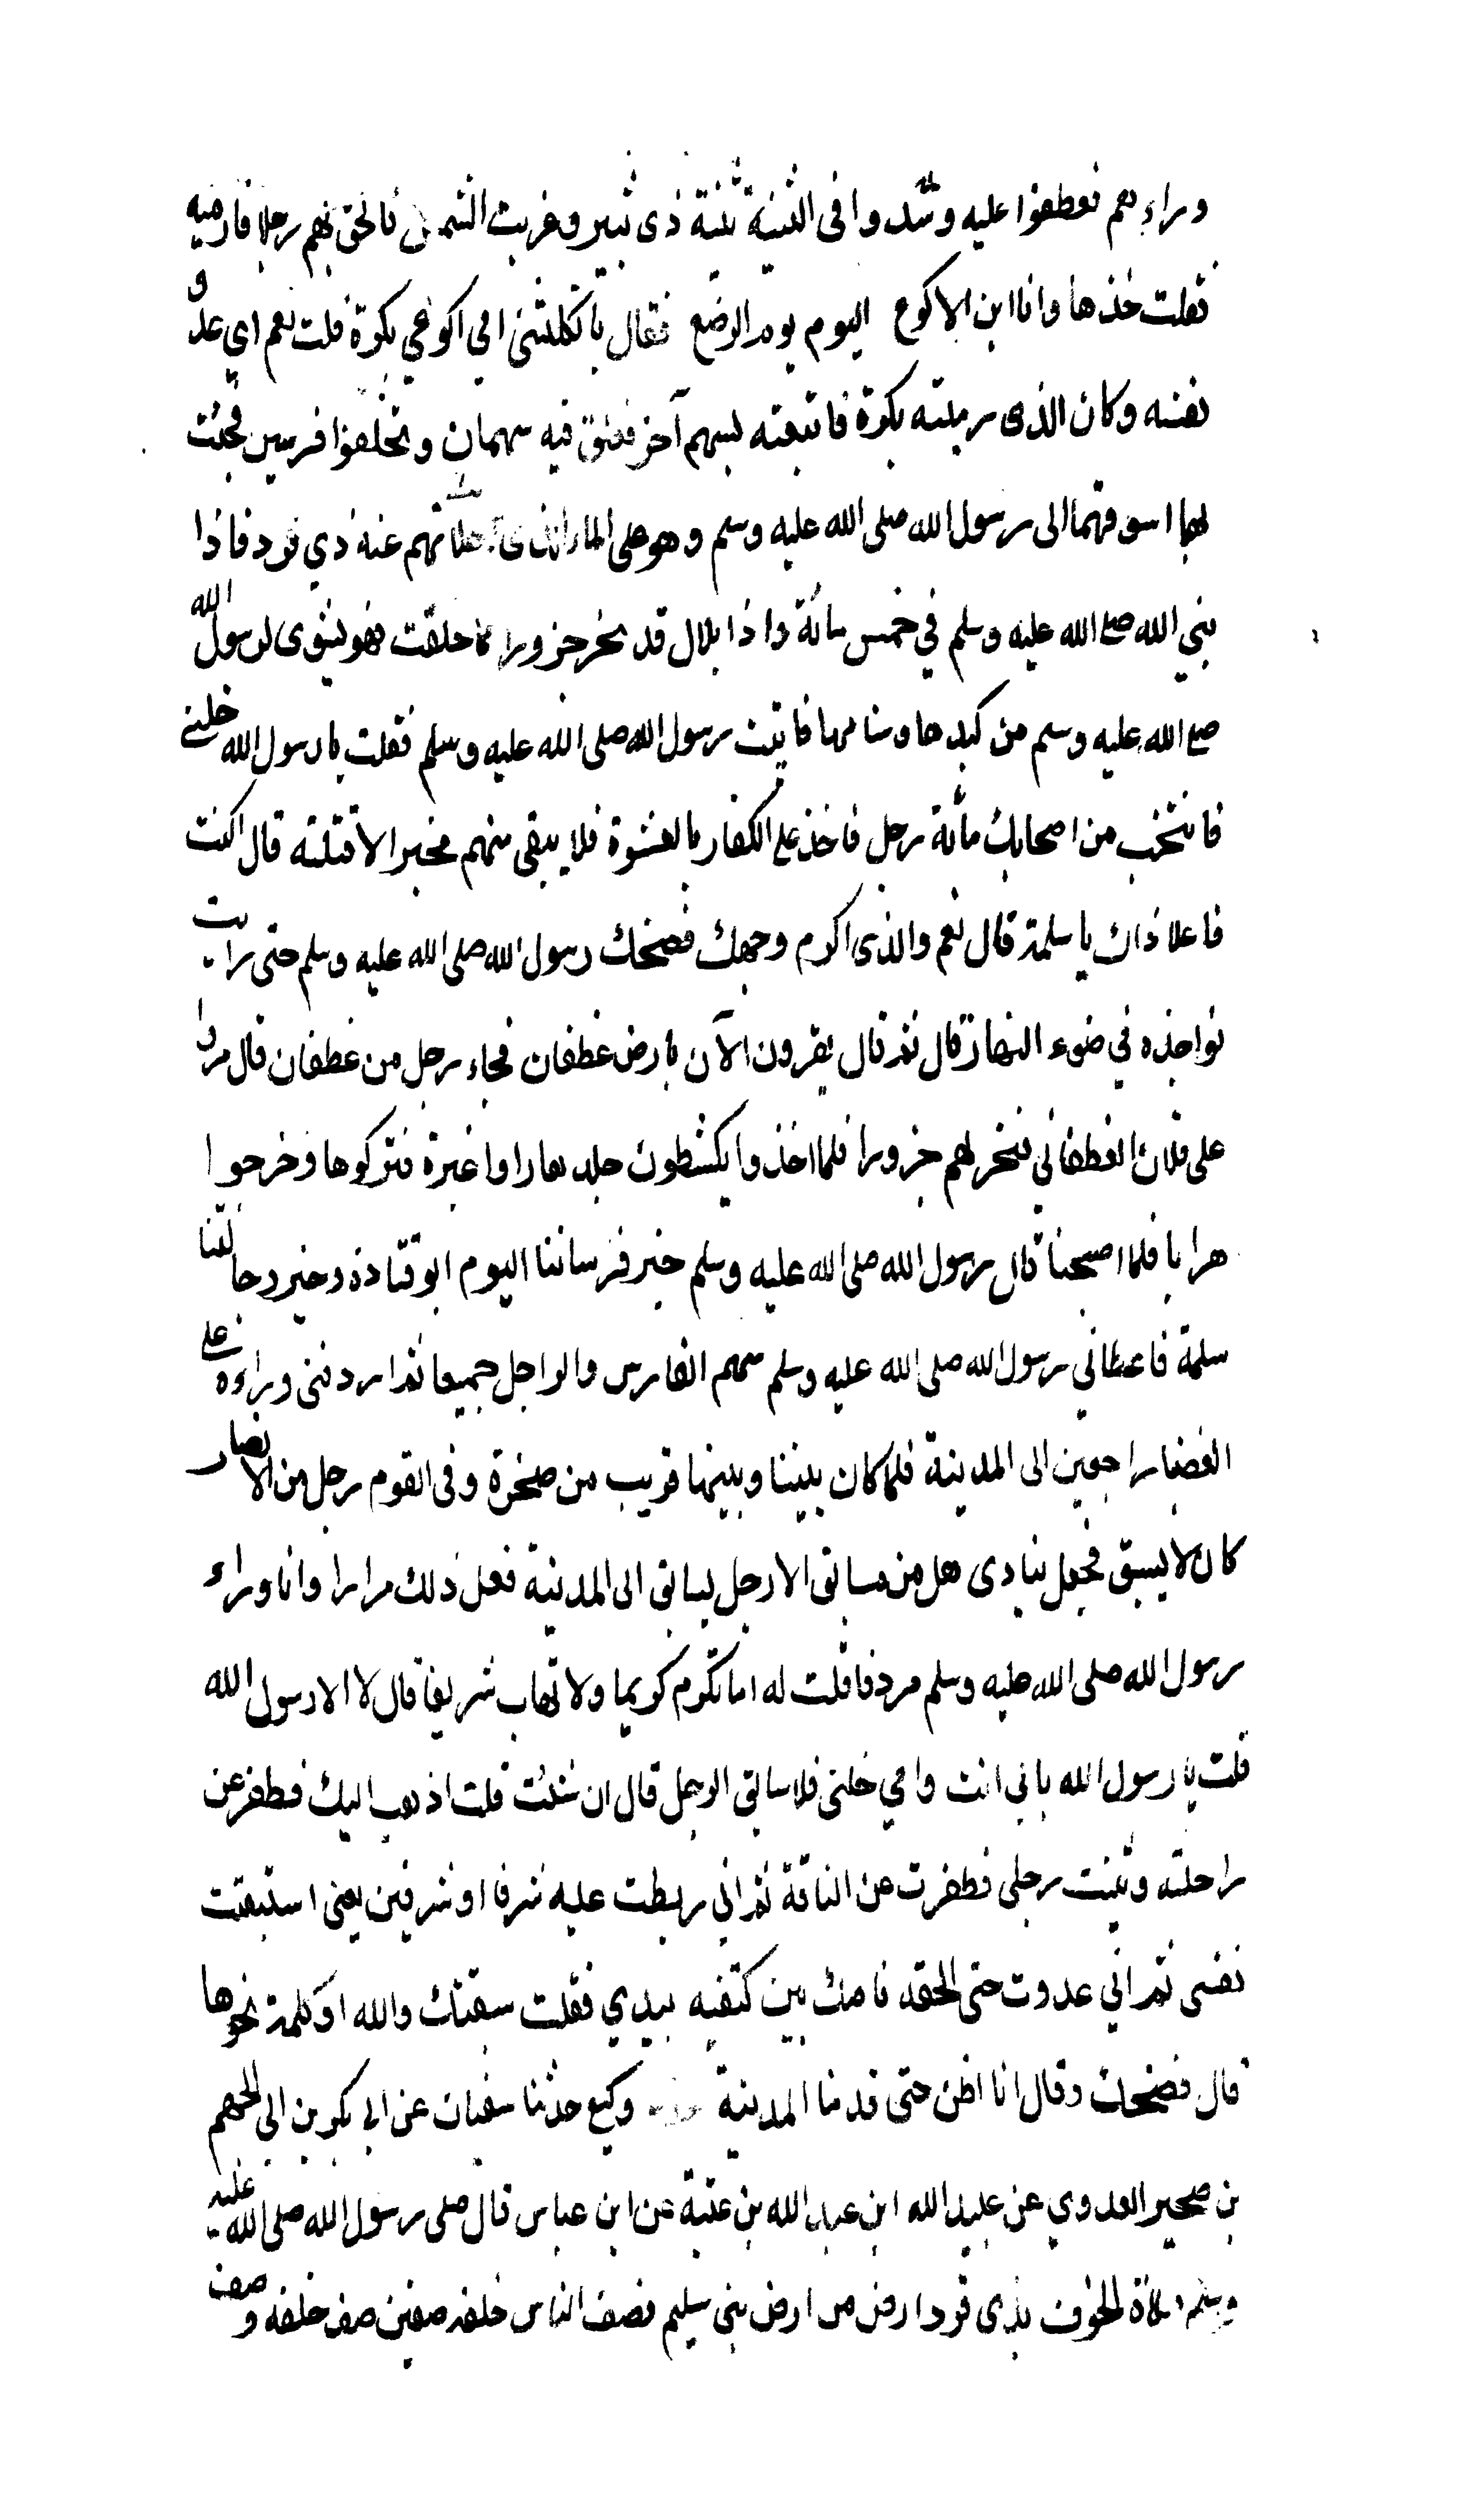 وراءهم فعطفوا عليه وشدوا في الثنية ثنية ذي ثبير وغربت الشمس فالحق بهم رجلا فارميه
فقلت خذها وانا ابن الاكوع اليوم يوم الرضع فقال يا ثكلتني امي اكوعي بكرة قلت نعم اي عدو
نفسه وكان الذي رميته بكرة فاتبعته بسهم آخر فعلق فيه سهمان وتخلفوا فرسين فجئت
بهما اسوقهما الى رسول الله صلى الله عليه وسلم وهو على الماء الذي حلاتهم عنه ذي قرد فاذا
بنبي الله صلع الله عليه وسلم في خمس مائة واذا بلال قد نحر جزورا مما خلفت فهو يشوى لرسول الله
صلع الله عليه وسلم من كبدها وسنامها فاتيت رسول الله صلى الله عليه وسلم فقلت يا رسول الله خلني
فانتخب من اصحابك مائة رجل فاخذ على الكفار بالعشوة فلا يبقى منهم مخبر الا قتلته قال اكنت
فاعلا ذاك يا سلمة قال نعم والذي اكرم وجهك فضحك رسول الله صلى الله عليه وسلم حتى رايت
نواجذه في ضوء النهار قال ثم قال يقرون الآن بارض غطفان فجاء رجل من غطفان قال مروا
على فلان الغطفاني فنحر لهم جزورا فلما اخذوا يكشطون جلدها راوا غبرة فتركوها وخرجوا
هرابا فلما اصبحنا قال رسول الله صلى الله عليه وسلم خير فرساننا اليوم ابو قتادة وخير رجالتنا
سلمة فاعطاني رسول الله صلى الله عليه وسلم سهم الفارس والراجل جميعا ثم اردفني وراءه على
الغضبا راجعين الى المدينة فلما كان بيننا وبينها قريب من صخرة وفي القوم رجل من الانصار
كان لا يسبق فجعل ينادي هل من مسابق الا رجل يسابق الى المدينة فعل ذلك مرارا وانا وراء
رسول الله صلى الله عليه وسلم مردفا قلت له اما تكرم كريما ولا تهاب شريفا قال لا الا رسول الله
قلت يا رسول الله بابي انت وامي خلني فلاسابق الرجل قال ان شئت قلت اذهب اليك فطفر عن
راحلته وثنيت رجلي فطفرت عن الناقة ثم اني ربطت عليه شرفا او شرفين يعني استبقيت
نفسي ثم اني عدوت حتى الحقه فاصك بين كتفيه بيدي فقلت سبقتك والله او كلمة نحوها
قال فضحك وقال انا اظن حتى قدمنا المدينة وكيع حدثنا سفيان عن ابي بكر بن ابي الجهم
بن صخير العدوي عن عبيد الله ابن عبد الله بن عتبة عن ابن عباس قال صلى رسول الله صلى الله عليه
وسلم صلاة الخوف بذي قرد ارض من ارض بني سليم فصف الناس خلفه صفين صف خلفه وصف